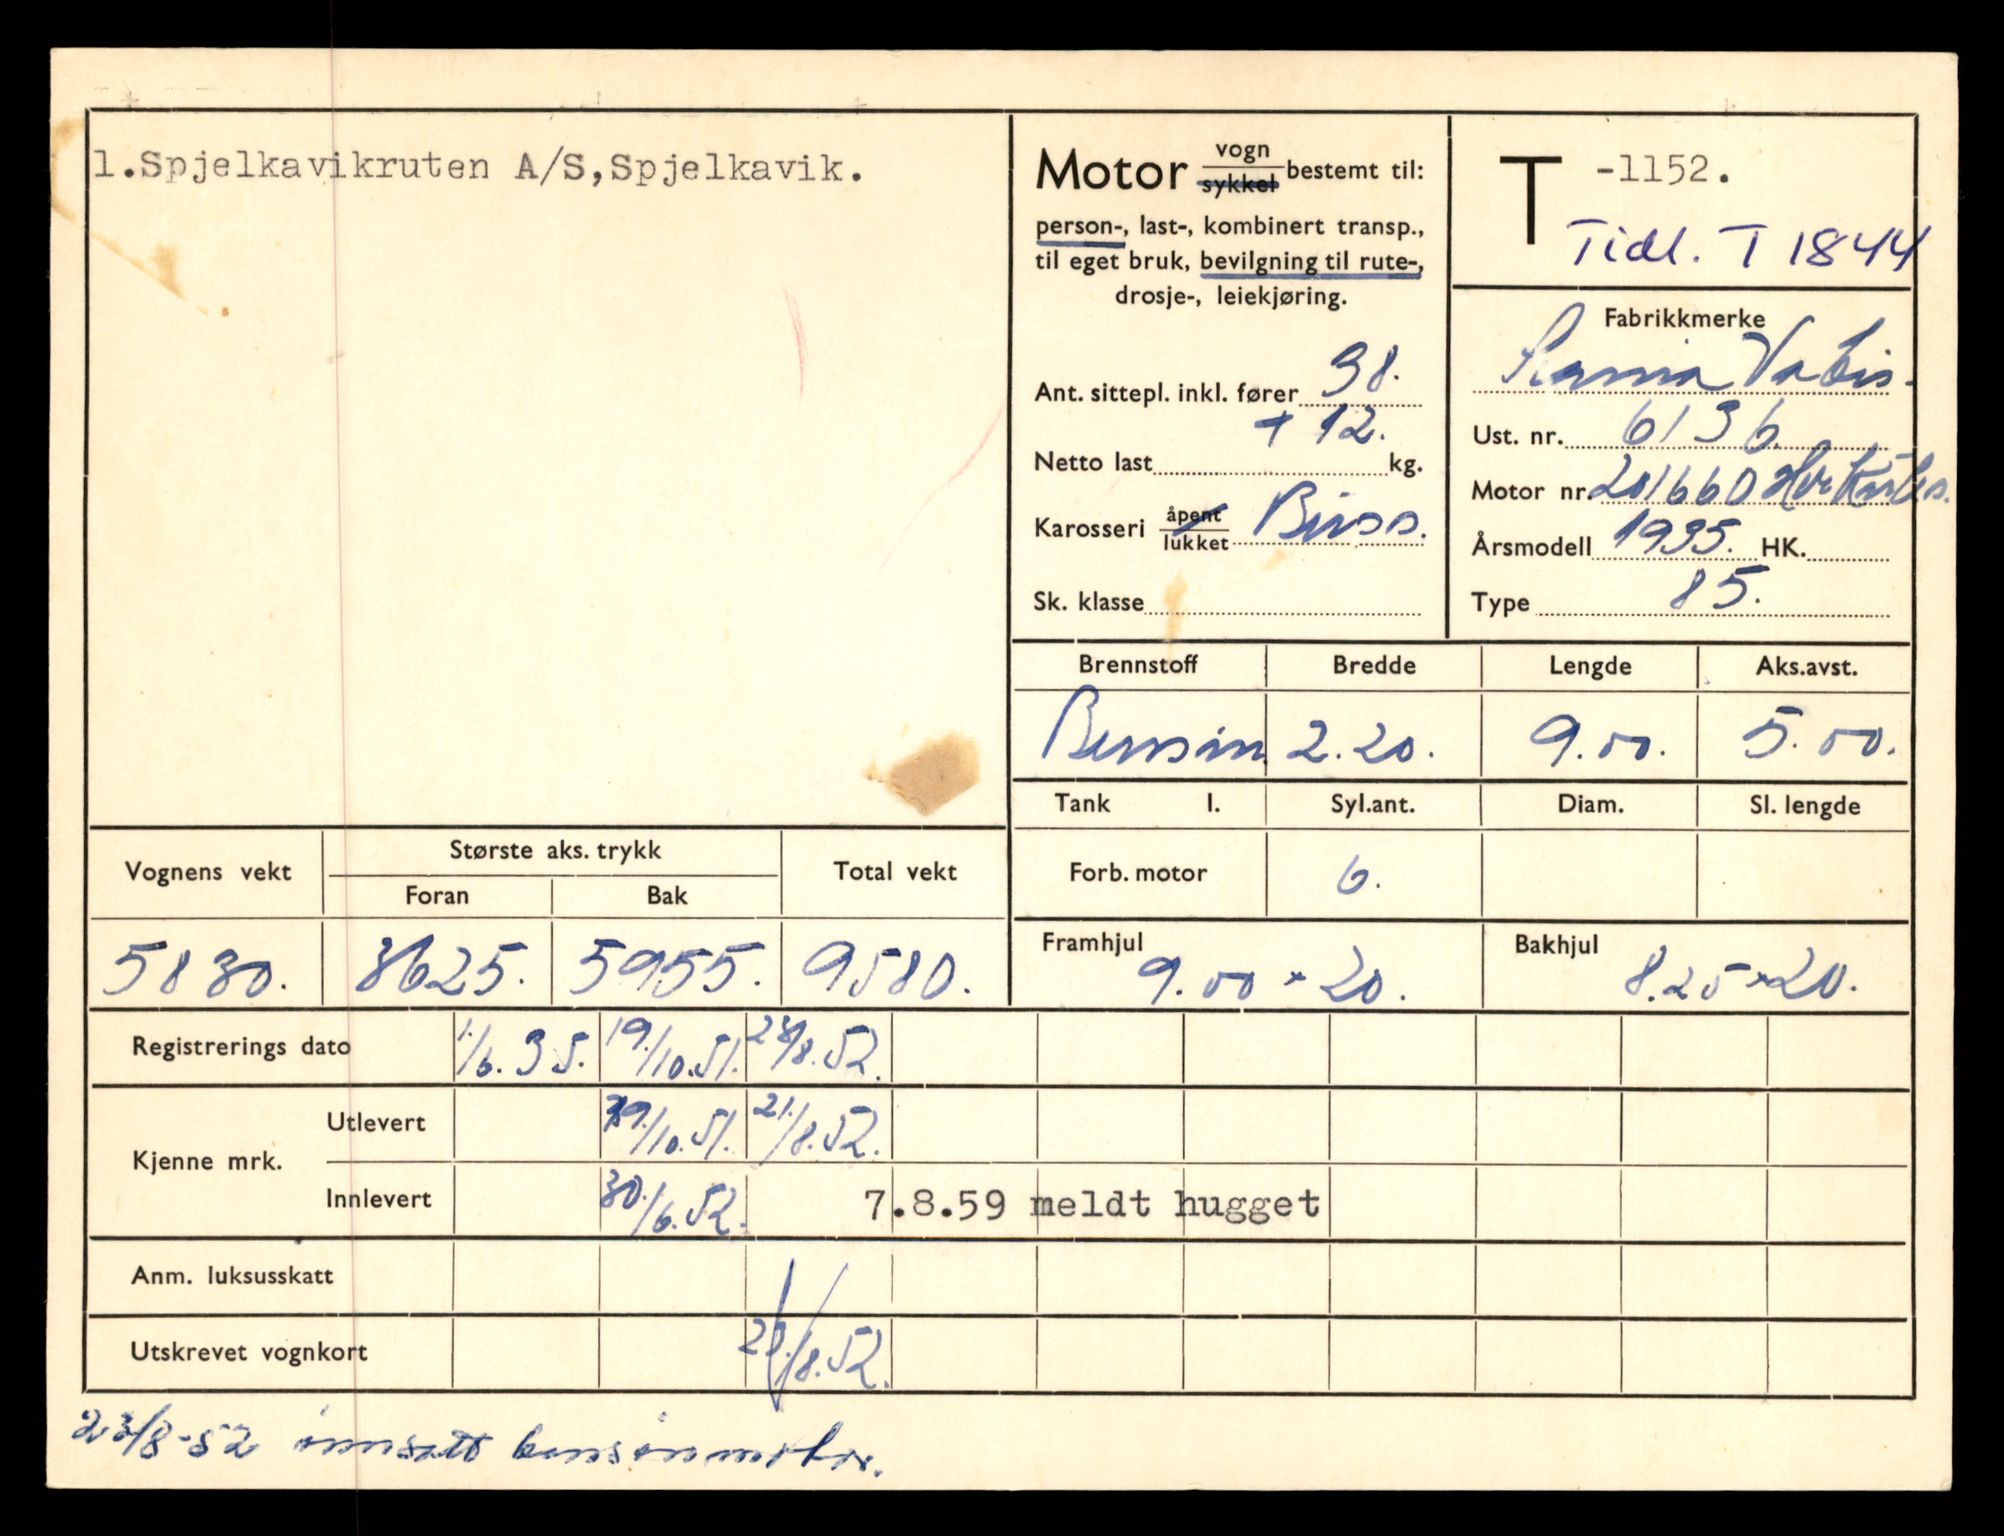 1.Spjelkavikruten A/S,Spjelkavik.
Motor vogn sykkel bestemt til:
person-, last-, kombinert transp.,
til eget bruk, bevilgning til rute-,
drosje-, leiekjøring.
Ant. sittepl. inkl. fører 38.
+ 12.
Netto last kg.
Karosseri åpent lukket Buss.
Sk. klasse
T -1152.
Tidl. T 1844
Fabrikkmerke
Scania Vabis.
Ust. nr. 6136
Motor nr. 201660 Herkules.
Årsmodell 1935. HK.
Type 85.
Brennstoff Bredde Lengde Aks.avst.
Bensin 2.20. 9.00. 5.00.
Tank l. Syl.ant. Diam. Sl. lengde
Forb. motor 6.
Framhjul 9.00 × 20. Bakhjul 8.25 × 20.
Vognens vekt Største aks. trykk Total vekt
Foran Bak
5830. 3625. 5955. 9580.
Registrerings dato 1./6.35. 19./10.51. 28/8.52.
Kjenne mrk.
Utlevert 19./10.51. 21./8.52.
Innlevert 30./6.52. 7.8.59 meldt hugget
Anm. luksusskatt
Utskrevet vognkort 28./8.52.
23/8-52 innsatt bensinmotor.